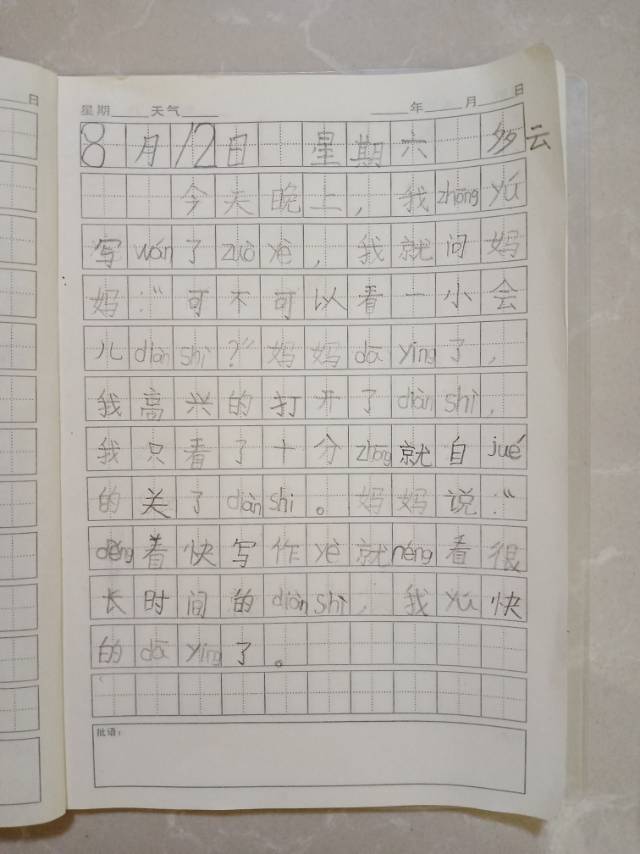 日
星期 天气 年 月 日
8月12日 星期六 多云
今天晚上，我zhōng yú
写wán了zuò yè，我就问妈
妈：“可不可以看一小会
儿diàn shì？”妈妈dā yìng了，
我高兴的打开了diàn shì，
我只看了十分zhōng就自jué
的关了diàn shì。妈妈说：“
děng着快写作yè就néng看很
长时间的diàn shì，我yú快
的dā yìng了。
批语：